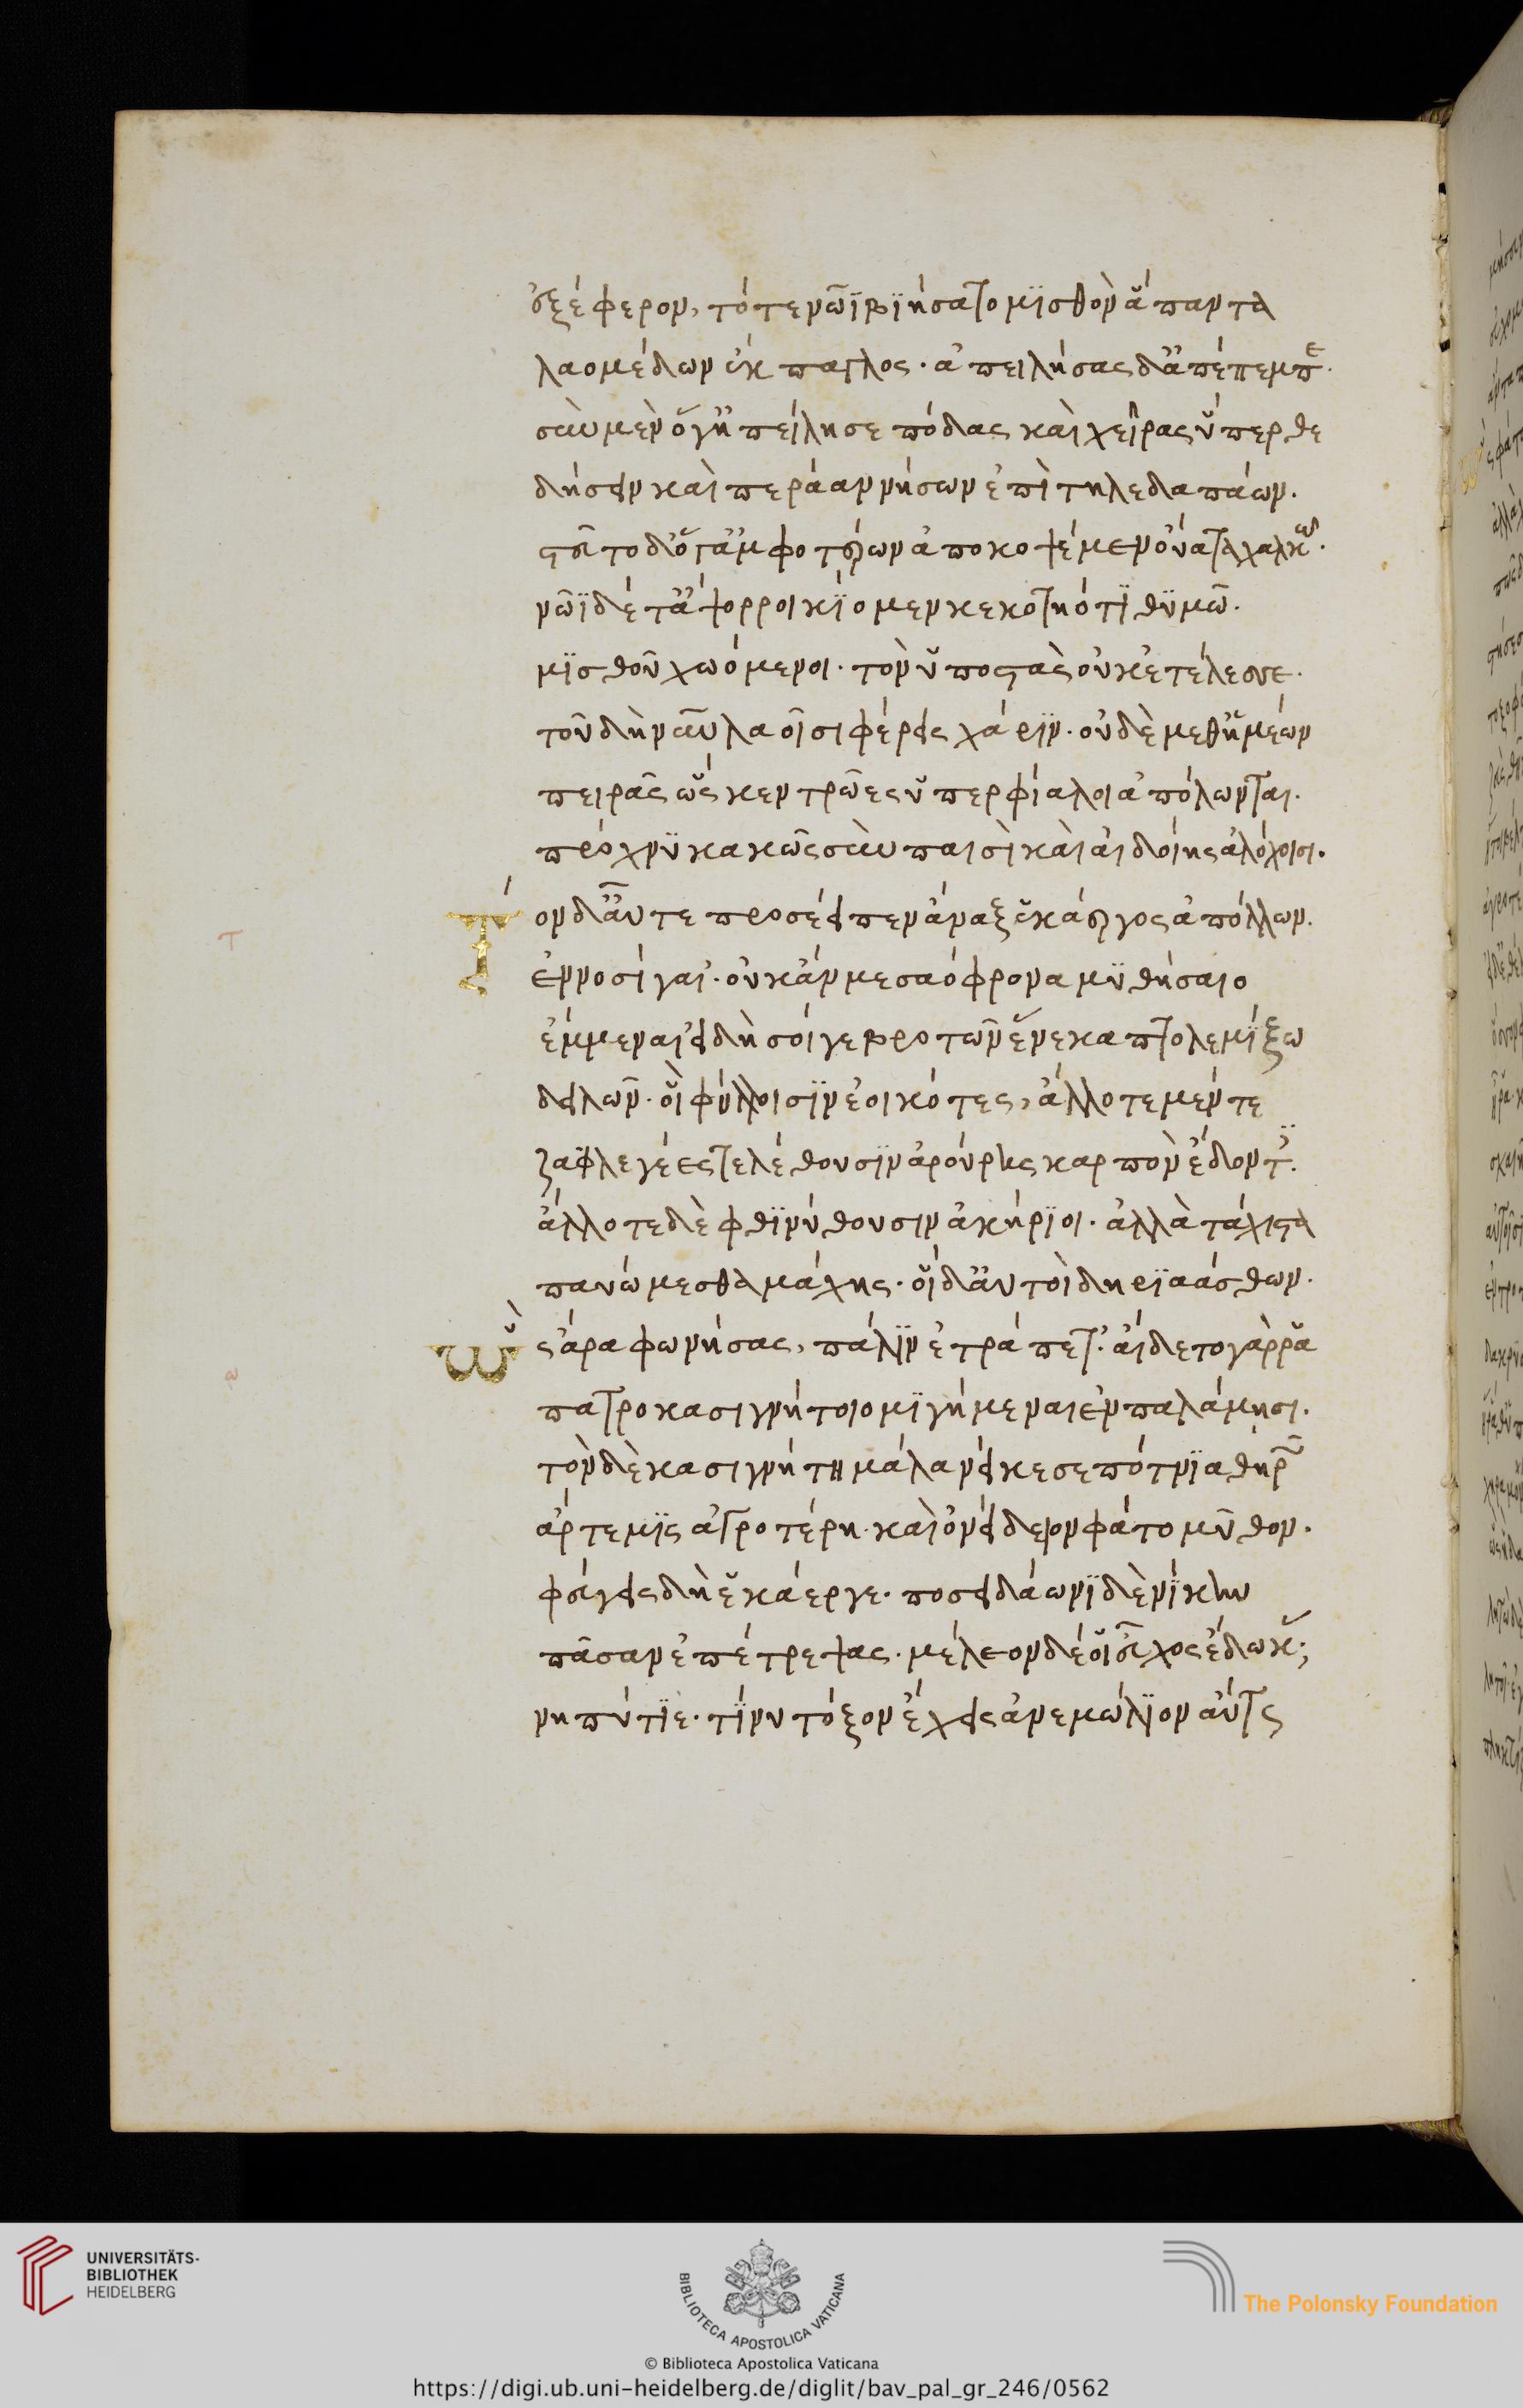 ἐξέφερον, τότε νῶϊ βϊήσατο μϊσθὸν ἅπαντα
λαομέδων ἔκπαγλος· ἀπειλήσας δ' ἀπέπεμπε·
σὺν μὲν ὅγ' ἠπείλησε πόδας καὶ χεῖρας ὕπερθε
δήσειν καὶ περάαν νήσων ἐπὶ τηλεδαπάων·
στεῦτο δ' ὅγ' ἀμφοτέρων ἀποκοψέμεν οὔατα χαλκῶ·
νῶϊ δέ τ' ἄψορροι κΐομεν κεκοτηότϊ θϋμῶ·
μϊσθοῦ χωόμενοι· τὸν ὑποστὰς οὐκ ἐτέλεσσε·
τοῦ δὴ νῦν λαοῖσι φέρεις χάριν· οὐδὲ μεθ' ἡμέων
πειρᾶς ὥς κεν τρῶες ὑπερφίαλοι ἀπόλωνται·
πρόχνϋ κακῶς σὺν παισὶ καὶ αἰδοίης ἀλόχοισι·
Τὸν δ' αὖτε προσέειπεν ἄναξ ἑκάεργος ἀπόλλων·
ἐννοσίγαι'· οὐκ ἄν με σαόφρονα μϋθήσαιο
ἔμμεναι εἰ δὴ σοίγε βροτῶν ἕνεκα πτολεμΐξω
δειλῶν· οἳ φύλλοισϊν ἐοικότες, ἄλλοτε μέν τε
ζαφλεγέες τελέθουσϊν ἀρούρης καρπὸν ἔδοντϊ·
ἄλλοτε δὲ φθϊνύθουσιν ἀκήρϊοι· ἀλλὰ τάχιστα
παυώμεσθα μάχης· οἵδ' αὐτοὶ δηρϊαάσθων·
Ὣς ἄρα φωνήσας, πάλϊν ἐτράπετ'· αἴδετο γάρ ῥα
πατροκασιγνήτοιο μϊγήμεναι ἐν παλάμησι·
τὸν δὲ κασιγνήτη μάλα νείκεσε πότνϊα θηρῶν
ἄρτεμϊς ἀγροτέρη· καὶ ὀνείδειον φάτο μῦθον·
φεύγεις δὴ ἑκάεργε· ποσειδάωνϊ δὲ νΐκην
πᾶσαν ἐπέτρεψας· μέλεον δέ οἱ εὖχος ἔδωκας;
νηπύτϊε· τΐ νυ τόξον ἔχεις ἀνεμώλϊον αὔτως
τ
ω
UNIVERSITÄTS-
BIBLIOTHEK
HEIDELBERG
BIBLIOTECA APOSTOLICA VATICANA
The Polonsky Foundation
© Biblioteca Apostolica Vaticana
https://digi.ub.uni-heidelberg.de/diglit/bav_pal_gr_246/0562